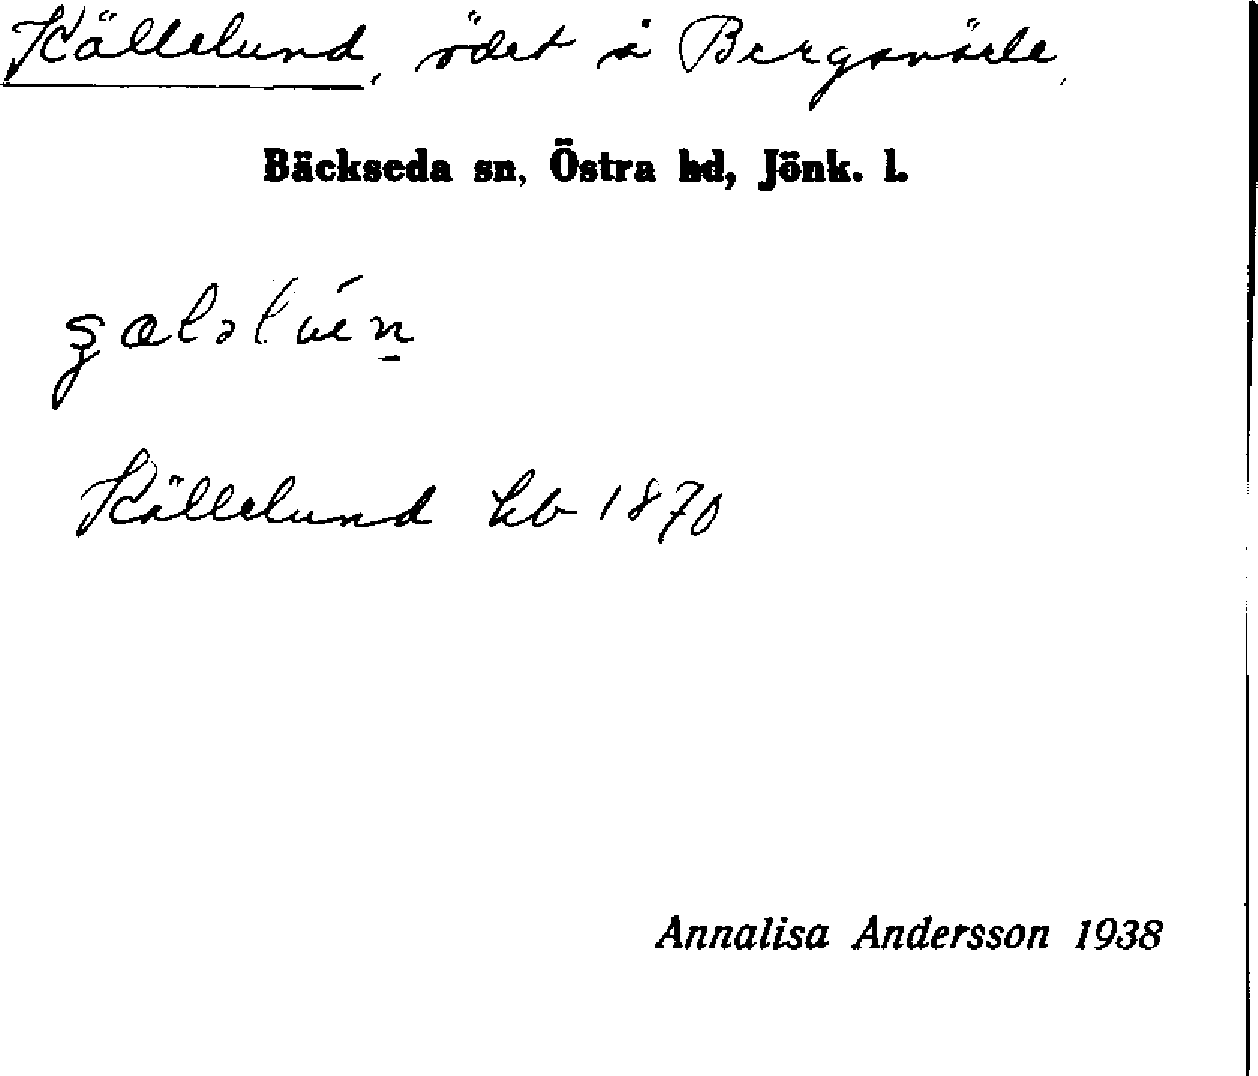 Källelund, ödet å
Bäckseda sn, Östra hd, Jönk. l.
Källelund hb 1870
Annalisa Andersson 1938